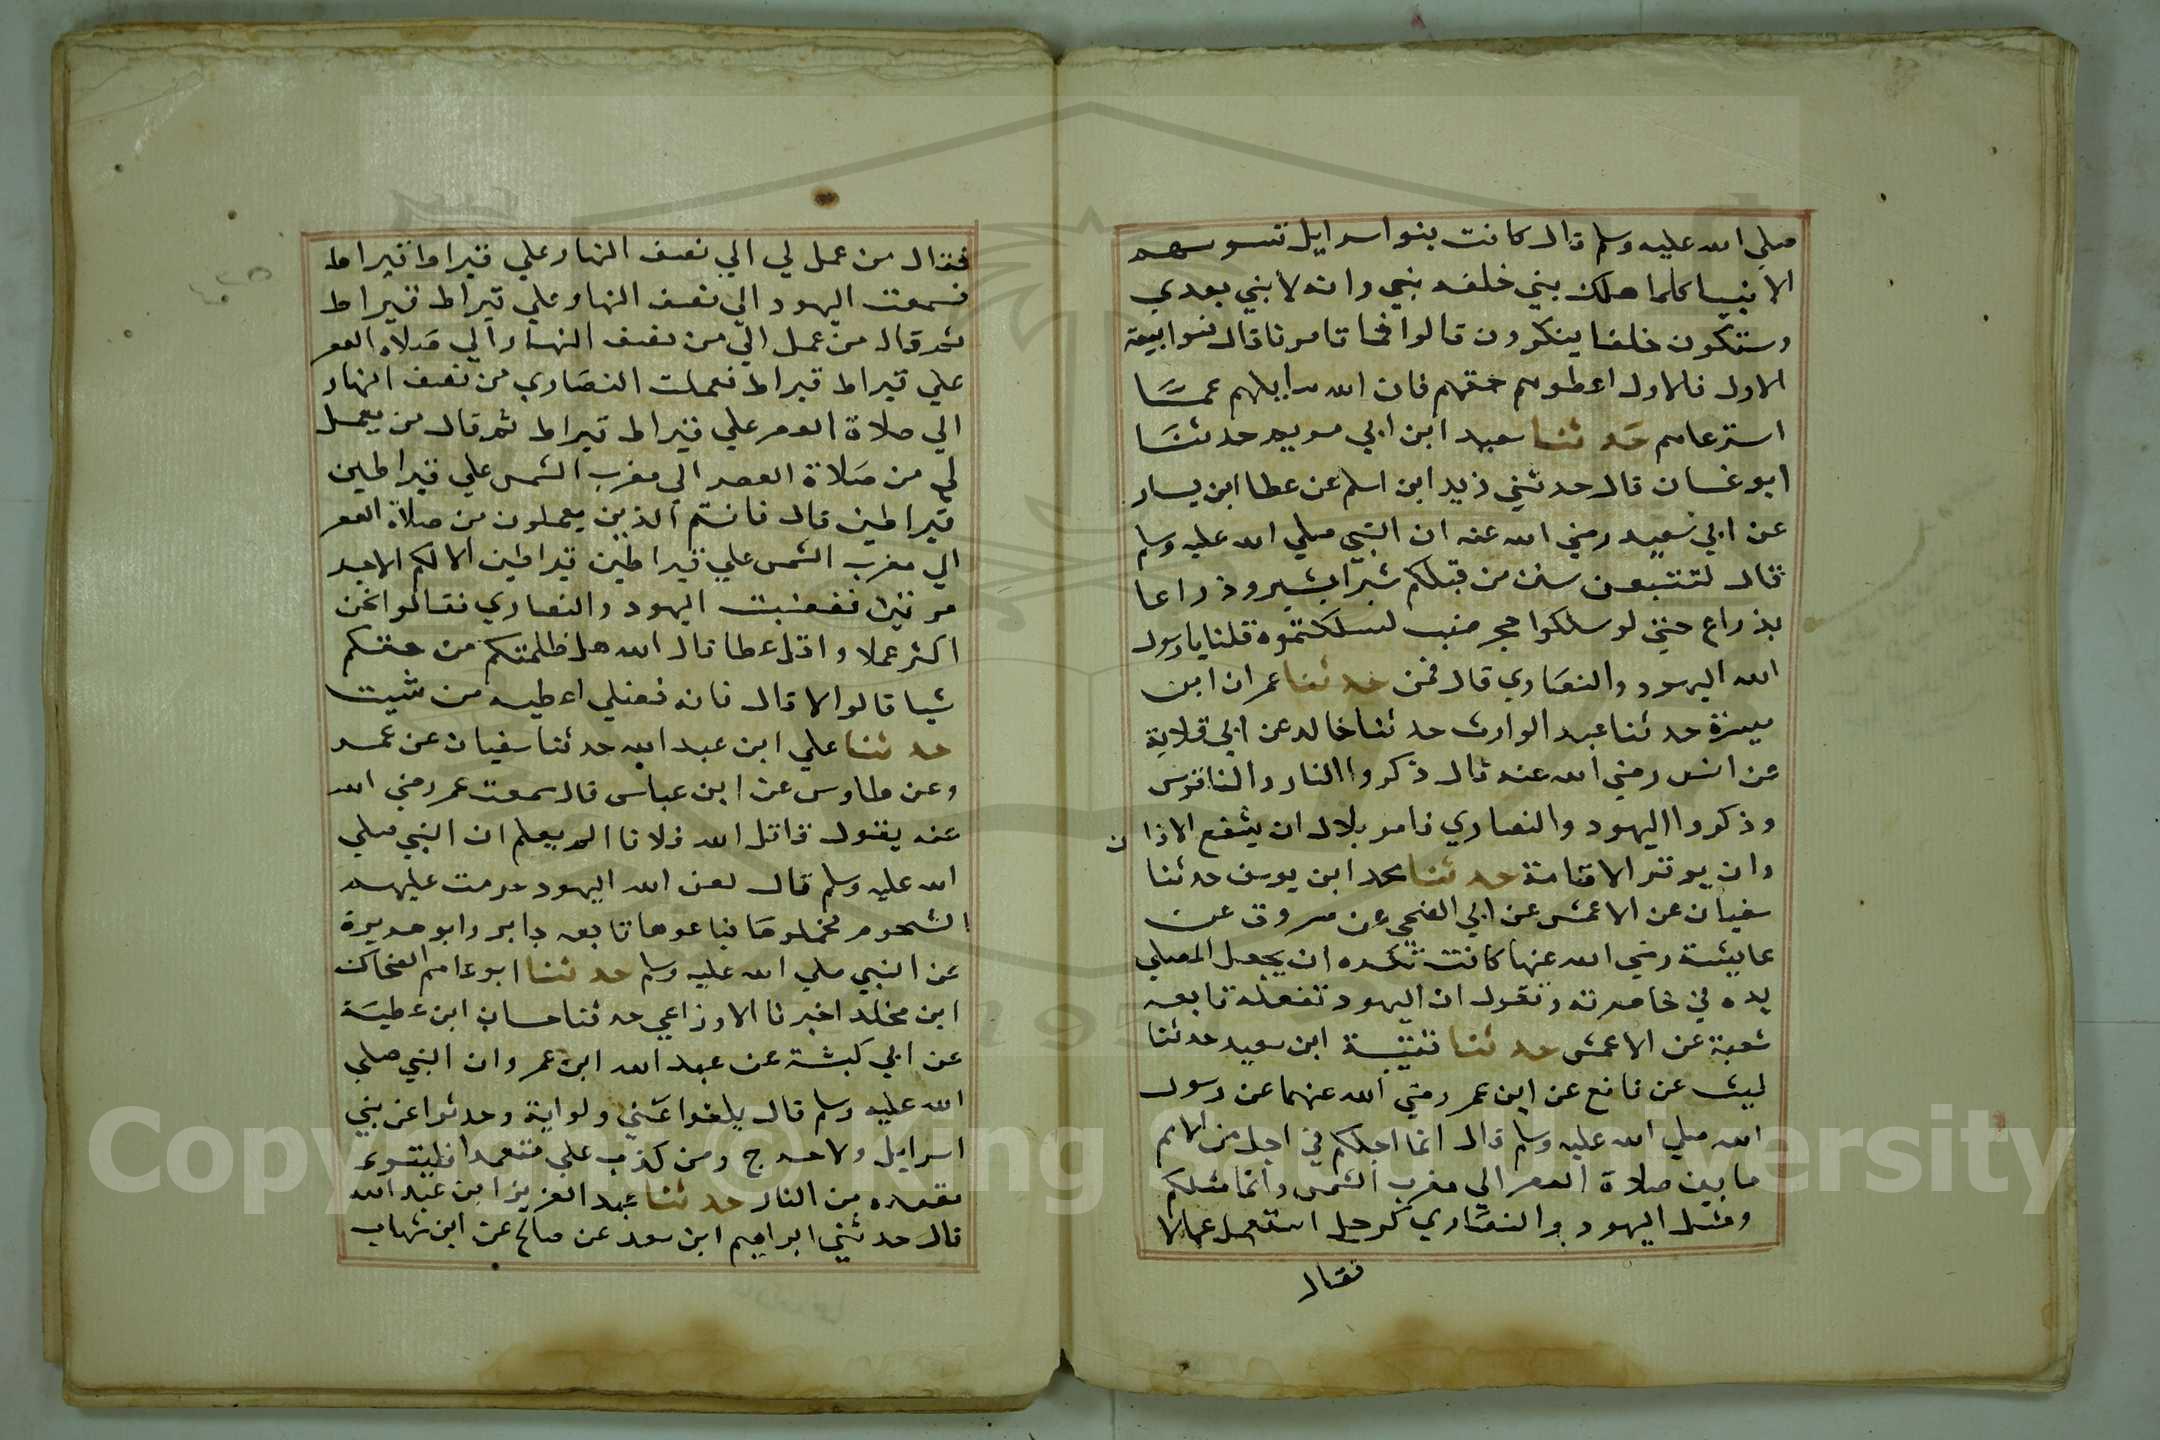 صلي الله عليه وسلم قال كانت بنوا سرايل تسوسهم
الانبيا كلما هلك بني خلفه بني وانه لا بني بعدي
وستكون خلفا ينكرون قالوا فما تامرنا قال فوا ببيعة
الاول فالاول اعطوهم حقهم فان الله سايلهم عمـا
استرعاهم حدثنا سعيد ابن ابي مريم حدثنا
ابو غسان قال حدثني زيد ابن اسلم عن عطا ابن يسار
عن ابي سعيد رضي الله عنه ان النبي صلي الله عليه وسلم
قال لتتبعن سنن من قبلكم شبرا بشبر وذراعا
بذراع حتي لو سلكوا حجر ضب لسلكتموه قلنا يا رسول
الله اليهود والنصاري قال فمن حدثنا عمران ابن
ميسرة حدثنا عبد الوارث حدثنا خالد عن ابي قلابة
عن انس رضي الله عنه قال ذكروا النار والناقوس
وذكروا اليهود والنصاري فامر بلال ان يشفع الاذا ن
وان يوتر الاقامة حدثنا محمد ابن يوسف حدثنا
سفيان عن الاعمش عن ابي الضحي عن مسروق عن
عايشة رضي الله عنها كانت تكره ان يجعل المصلي
يده في خاصرته وتقول ان اليهود تفعله تابعه
شعبة عن الاعمش حدثنا قتيبة ابن سعيد حدثنا
ليث عن نافع عن ابن عمر رضي الله عنهما عن رسول
الله صلي الله عليه وسلم قال انما اجلكم في اجل من الامم
ما بين صلاة العصر الي مغرب الشمس وانما مثلكم
ومثل اليهود والنصاري كرجل استعمل عمالا
فقال
فقال من عمل لي الي نصف النهار علي قيراط قيراط
فعملت اليهود الي نصف النهار علي قيراط قيراط
ثم قال من عمل الي من نصف النهار الي صلاة العصر
علي قيراط قيراط فعملت النصاري من نصف النهار
الي صلاة العصر علي قيراط قيراط ثم قال من يعمل
لي من صلاة العصر الي مغرب الشمس علي قيراطين
قيراطين قال فانتم الذين يعملون من صلاة العصر
الي مغرب الشمس علي قيراطين قيراطين الا لكم الاجر
مرتين فغضبت اليهود والنصاري فقالوا نحن
اكثر عملا واقل عطا قال الله هل ظلمتكم من حقكم
شيا قالوا لا قال فانه فضلي اعطيه من شيت
حدثنا علي ابن عبد الله حدثنا سفيان عن عمر
وعن طاوس عن ابن عباس قال سمعت عمر رضي الله
عنه يقول قاتل الله فلانا الم يعلم ان النبي صلي
الله عليه وسلم قال لعن الله اليهود حرمت عليهم
الشحوم فجملوها فباعوها تابعه جابر وابو هريرة
عن النبي صلي الله عليه وسلم حدثنا ابو عاصم الضحاك
ابن مخلد اخبرنا الاوزاعي حدثنا حسان ابن عطية
عن ابي كبشة عن عبد الله ابن عمر وان النبي صلي
الله عليه وسلم قال بلغوا عني ولو اية وحدثوا عن بني
اسرايل ولا حرج ومن كذب علي متعمدا فليتبوء
مقعده من النار حدثنا عبد العزيز ابن عبد الله
قال حدثني ابراهيم ابن سعد عن صالح عن ابن شهاب
Copyright © King Saud University